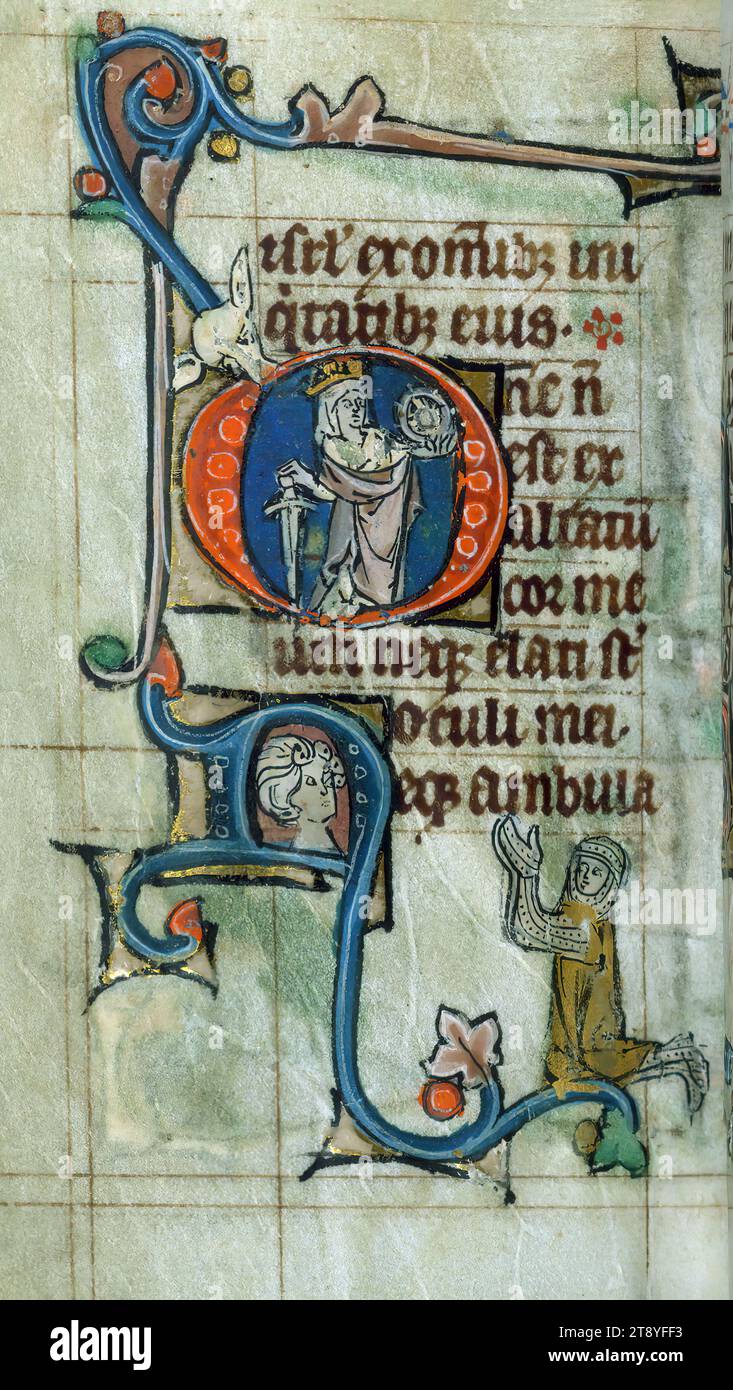 isrl' ex om̄ibꝫ ini
q̇tatibꝫ eius.
Dn̄e n̄
est ex
altatū
cor me
um neqꝫ elati st'
oculi mei.
Neqꝫ ambula
alamy
Image ID: 2T8YFF3
www.alamy.com